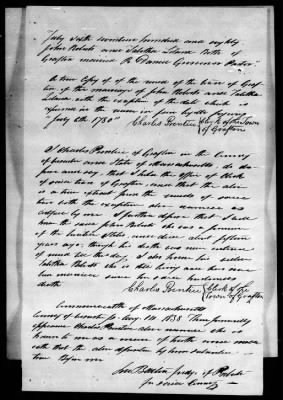 "July sixth seventeen hundred and eighty
John Roberts and Tabitha Leland Both of
Grafton married By Daniel Grosvenor Pastor"
A true Copy of the record of the town of Graf-
ton of the marriage of John Roberts and Tabitha
Leland with the exception of the date which is
expressed in the record in
"July 6th 1780" Charles Prentice Clerk of the Town of Grafton
I Charles Prentice of Grafton in the County
of Worcester and State of Massachusetts do de
pose and say, that I hold the office of Clerk
of said town of Grafton and that the above
is a true extract from the records of said
town with the exception above named as
certified by me I further depose that I well
knew the said John Roberts who was a pensioner
of the United States and died about fifteen
years ago though his death was never
of record till this day. I also know his widow
Tabitha Roberts who is still living and has never
been married since her said husband's
death Charles Prentice Clerk of the Town of Grafton
Commonwealth of Massachusetts
County of Worcester ss. 1838 Then personally
appeared Charles Prentice above named who is
known to me as a man of truth and made
oath that the above deposition by him subscribed is
true Before me
Judge of Probate
for said County